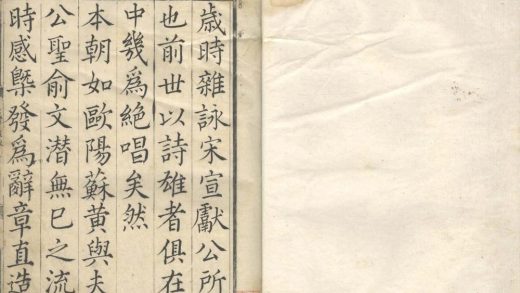 歲時雜詠宋宣獻公所
也前世以詩雄者俱在
中幾爲絶唱矣然
本朝如歐陽蘇黄與夫
公聖俞文潛無已之流
時感槩發爲辭章直造